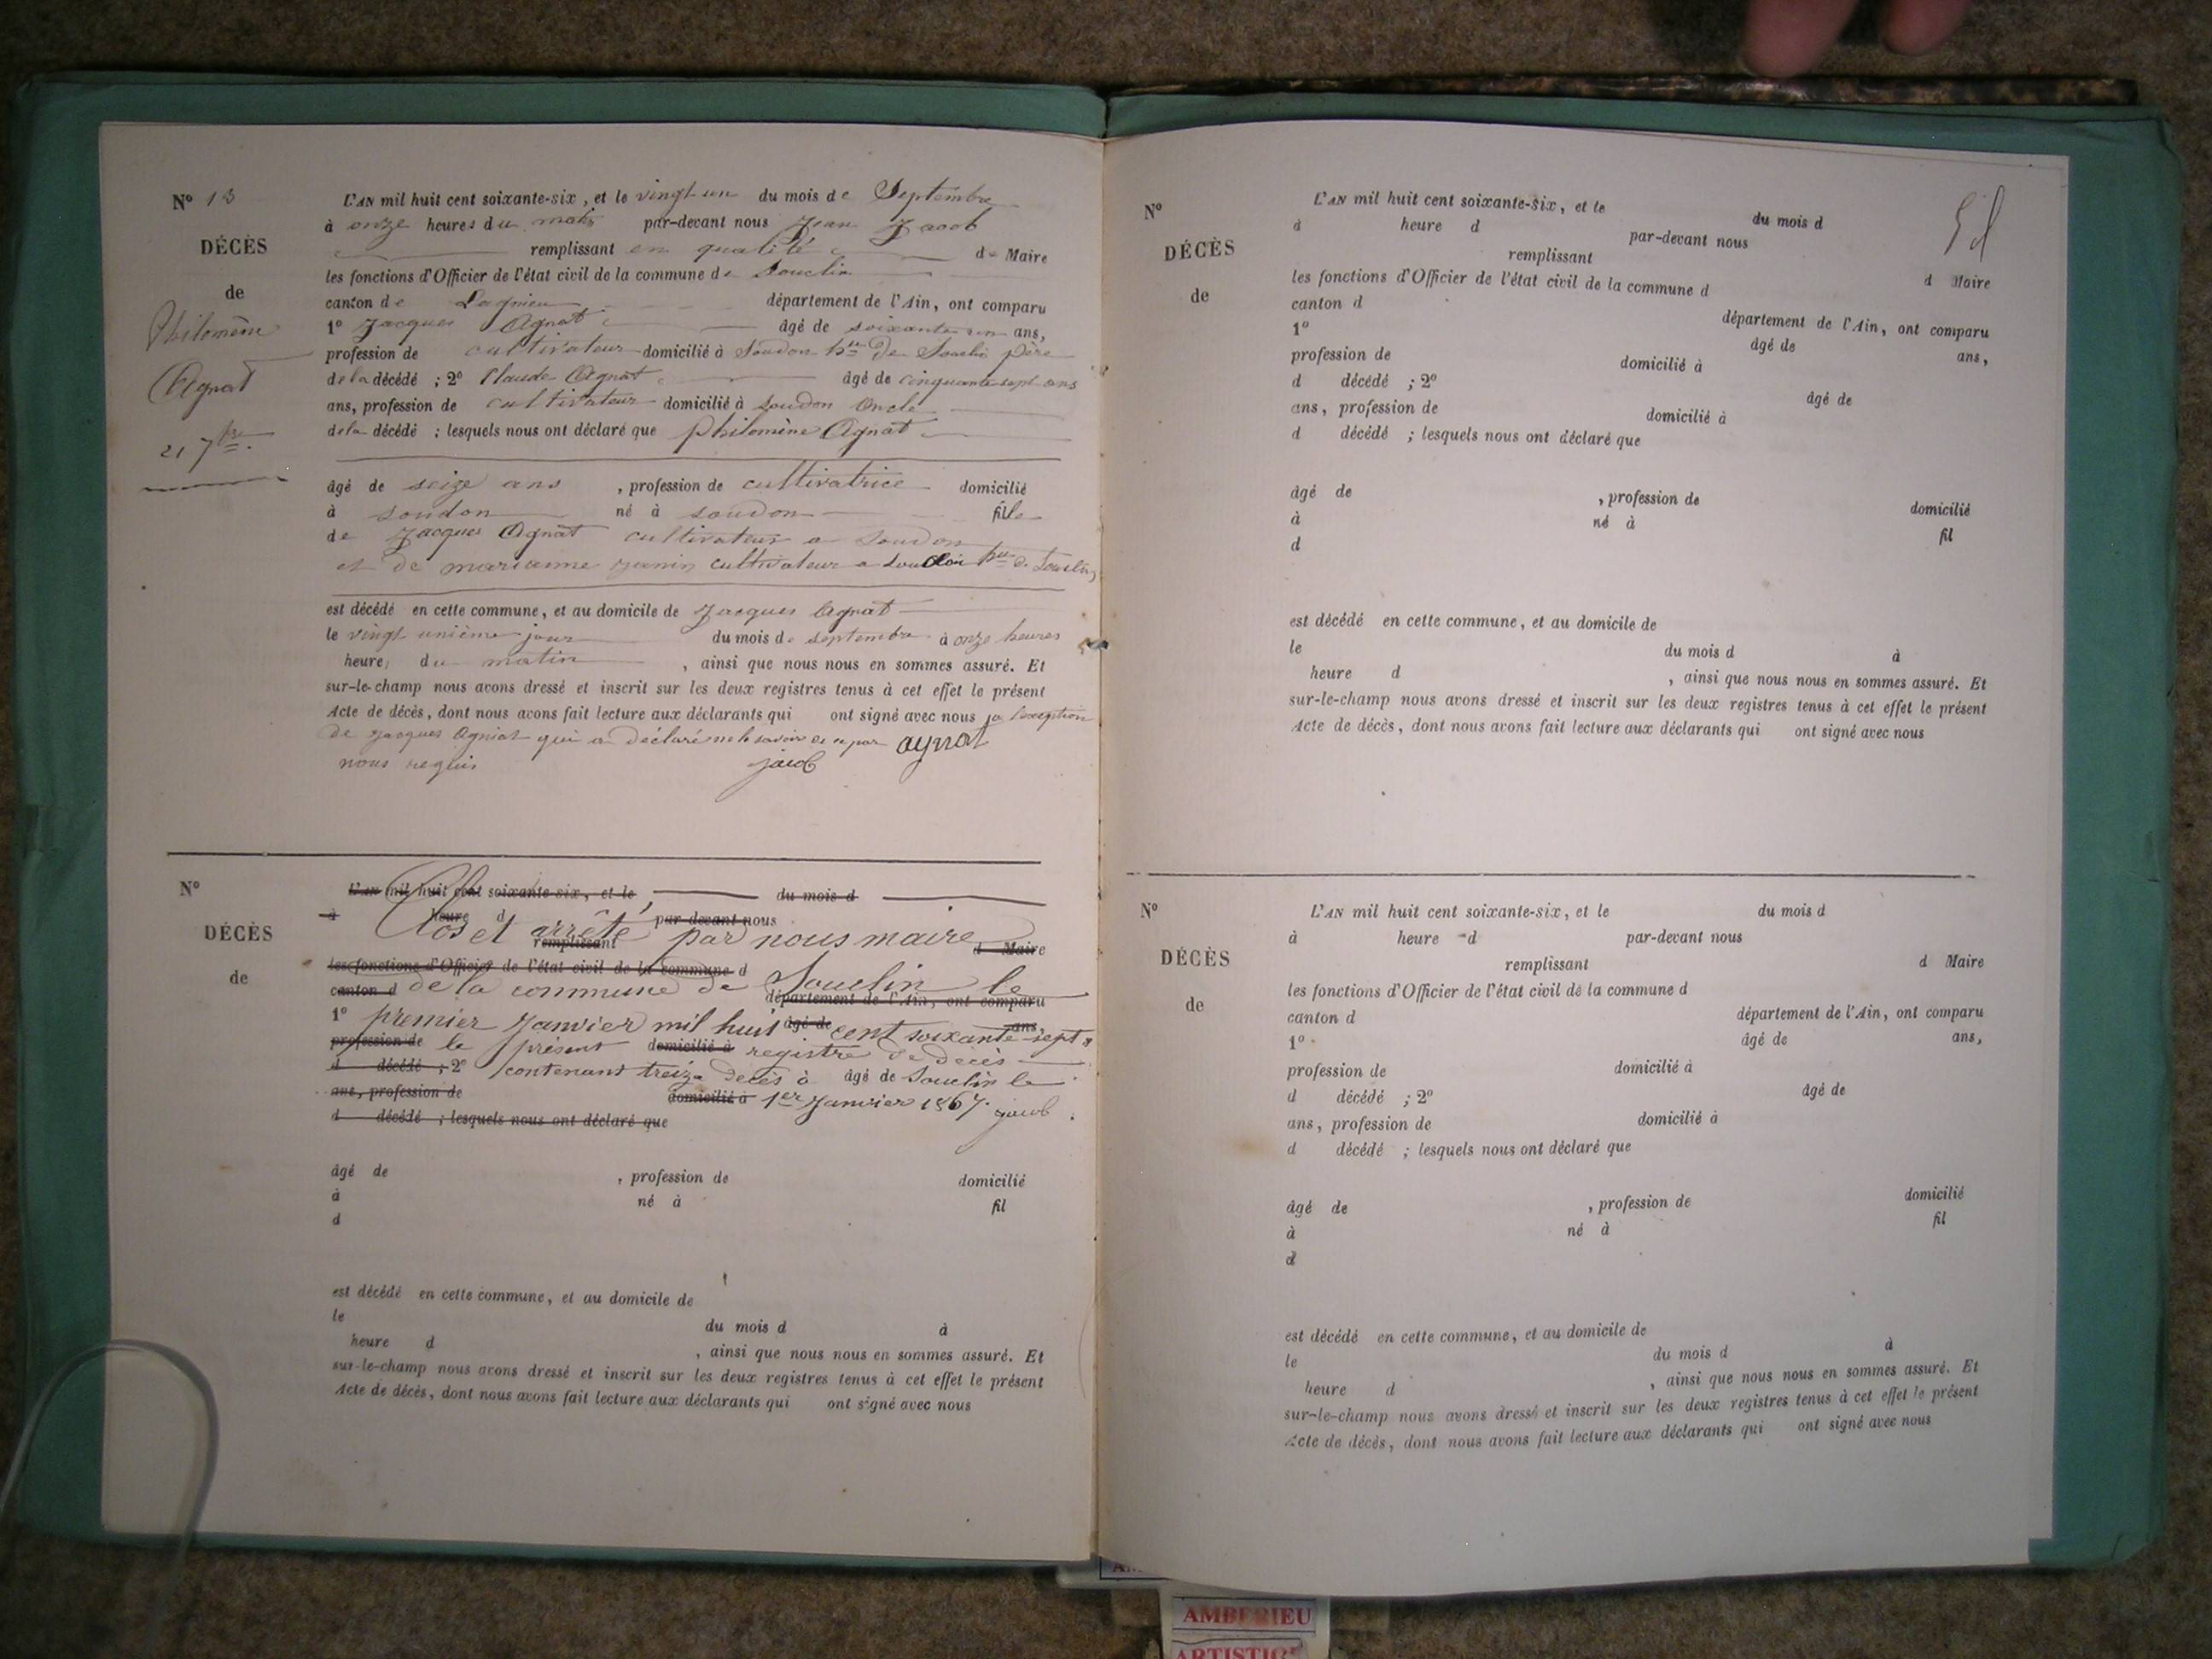 N° 13
DÉCÈS
de
Philomène
Agnat
21 7bre
L'AN mil huit cent soixante-six, et le vingt un du mois de Septembre
à onze heures du matin par-devant nous Jean Jacob
remplissant en qualité de Maire
les fonctions d'Officier de l'état civil de la commune de Souclin
canton de Lagnieu département de l'Ain, ont comparu
1° Jacques Agnat âgé de soixante un ans,
profession de cultivateur domicilié à Soudon hau de Souclin père
de la décédé ; 2° Claude Agnat âgé de cinquante sept ans
ans, profession de cultivateur domicilié à Soudon oncle
de la décédé ; lesquels nous ont déclaré que philomène Agnat
âgé de seize ans , profession de cultivatrice domicilié
à soudon né à soudon fille
de Jacques Agnat cultivateur a Soudon
et de marianne janin cultivateur a hau de Souclin,
est décédé en cette commune, et au domicile de Jacques Agnat
le vingt unième jour du mois de septembre à onze heures
heure, du matin , ainsi que nous nous en sommes assuré. Et
sur-le-champ nous avons dressé et inscrit sur les deux registres tenus à cet effet le présent
Acte de décès, dont nous avons fait lecture aux déclarants qui ont signé avec nous a l'exception
de Jacques Agnat qui a déclaré ne le savoir de ce par agnat
nous requis jacob
N°
DÉCÈS
de
L'AN mil huit cent soixante-six, et le du mois d
à heure d par-devant nous
Clos et arrêté par nous maire
remplissant d Maire
les fonctions d'Officier de l'état civil de la commune d
canton d de la commune de Souclin le
département de l'Ain, ont comparu
1° premier Janvier mil huit âgé de cent soixante-sept ans,
profession de le présent domicilié à registre de décès
d décédé ; 2° contenant treize decès à âgé de Souclin le
ans, profession de domicilié à 1er Janvier 1867. jacob
d décédé ; lesquels nous ont déclaré que
âgé de , profession de domicilié
à né à fil
d
est décédé en cette commune, et au domicile de
le du mois d à
heure d , ainsi que nous nous en sommes assuré. Et
sur-le-champ nous avons dressé et inscrit sur les deux registres tenus à cet effet le présent
Acte de décès, dont nous avons fait lecture aux déclarants qui ont signé avec nous
N°
DÉCÈS
de
L'AN mil huit cent soixante-six, et le du mois d
à heure d par-devant nous
remplissant d Maire
les fonctions d'Officier de l'état civil de la commune d
canton d département de l'Ain, ont comparu
1° âgé de ans,
profession de domicilié à
d décédé ; 2° âgé de
ans, profession de domicilié à
d décédé ; lesquels nous ont déclaré que
âgé de , profession de domicilié
à né à fil
d
est décédé en cette commune, et au domicile de
le du mois d à
heure d , ainsi que nous nous en sommes assuré. Et
sur-le-champ nous avons dressé et inscrit sur les deux registres tenus à cet effet le présent
Acte de décès, dont nous avons fait lecture aux déclarants qui ont signé avec nous
N°
DÉCÈS
de
L'AN mil huit cent soixante-six, et le du mois d
à heure d par-devant nous
remplissant d Maire
les fonctions d'Officier de l'état civil de la commune d
canton d département de l'Ain, ont comparu
1° âgé de ans,
profession de domicilié à
d décédé ; 2° âgé de
ans, profession de domicilié à
d décédé ; lesquels nous ont déclaré que
âgé de , profession de domicilié
à né à fil
d
est décédé en cette commune, et au domicile de
le du mois d à
heure d , ainsi que nous nous en sommes assuré. Et
sur-le-champ nous avons dressé et inscrit sur les deux registres tenus à cet effet le présent
Acte de décès, dont nous avons fait lecture aux déclarants qui ont signé avec nous
AMBERIEU